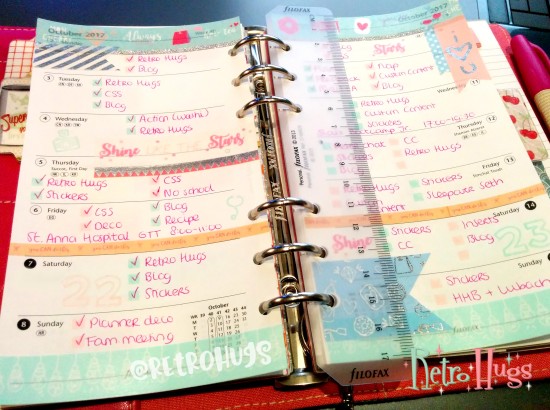 October 2017
Always
3 Tuesday
✓ Retro Hugs
✓ Blog
✓ Retro Hugs
✓ CSS
✓ Blog
4 Wednesday
✓ Action
✓ Retro Hugs
Shine
Stars
5 Thursday
✓ Retro Hugs
✓ Stickers
✓ CSS
✓ No school
6 Friday
✓ CSS
✓ Deco
✓ Blog
✓ Recipe
St. Anna Hospital GTT 8:00-11:00
7 Saturday
22
✓ Retro Hugs
✓ Blog
✓ Stickers
8 Sunday
✓ Planner deco
✓ Fam meeting
October
@RETROHUGS
FILOFAX
October 2017
i ♥ u
Stars
✓ Nap
✓ Custom Content
✓ Blog
Wednesday 11
Retro Hugs
Custom Content
Stickers
Thursday 12
CC
Retro Hugs
Personal FILOFAX © 2013
Friday 13
Stickers
Sleepover Seth
Saturday 14
Stickers
CC
Inserts
Blog
Shine
23
Sunday
Stickers
HHB +
FILOFAX
Retro Hugs